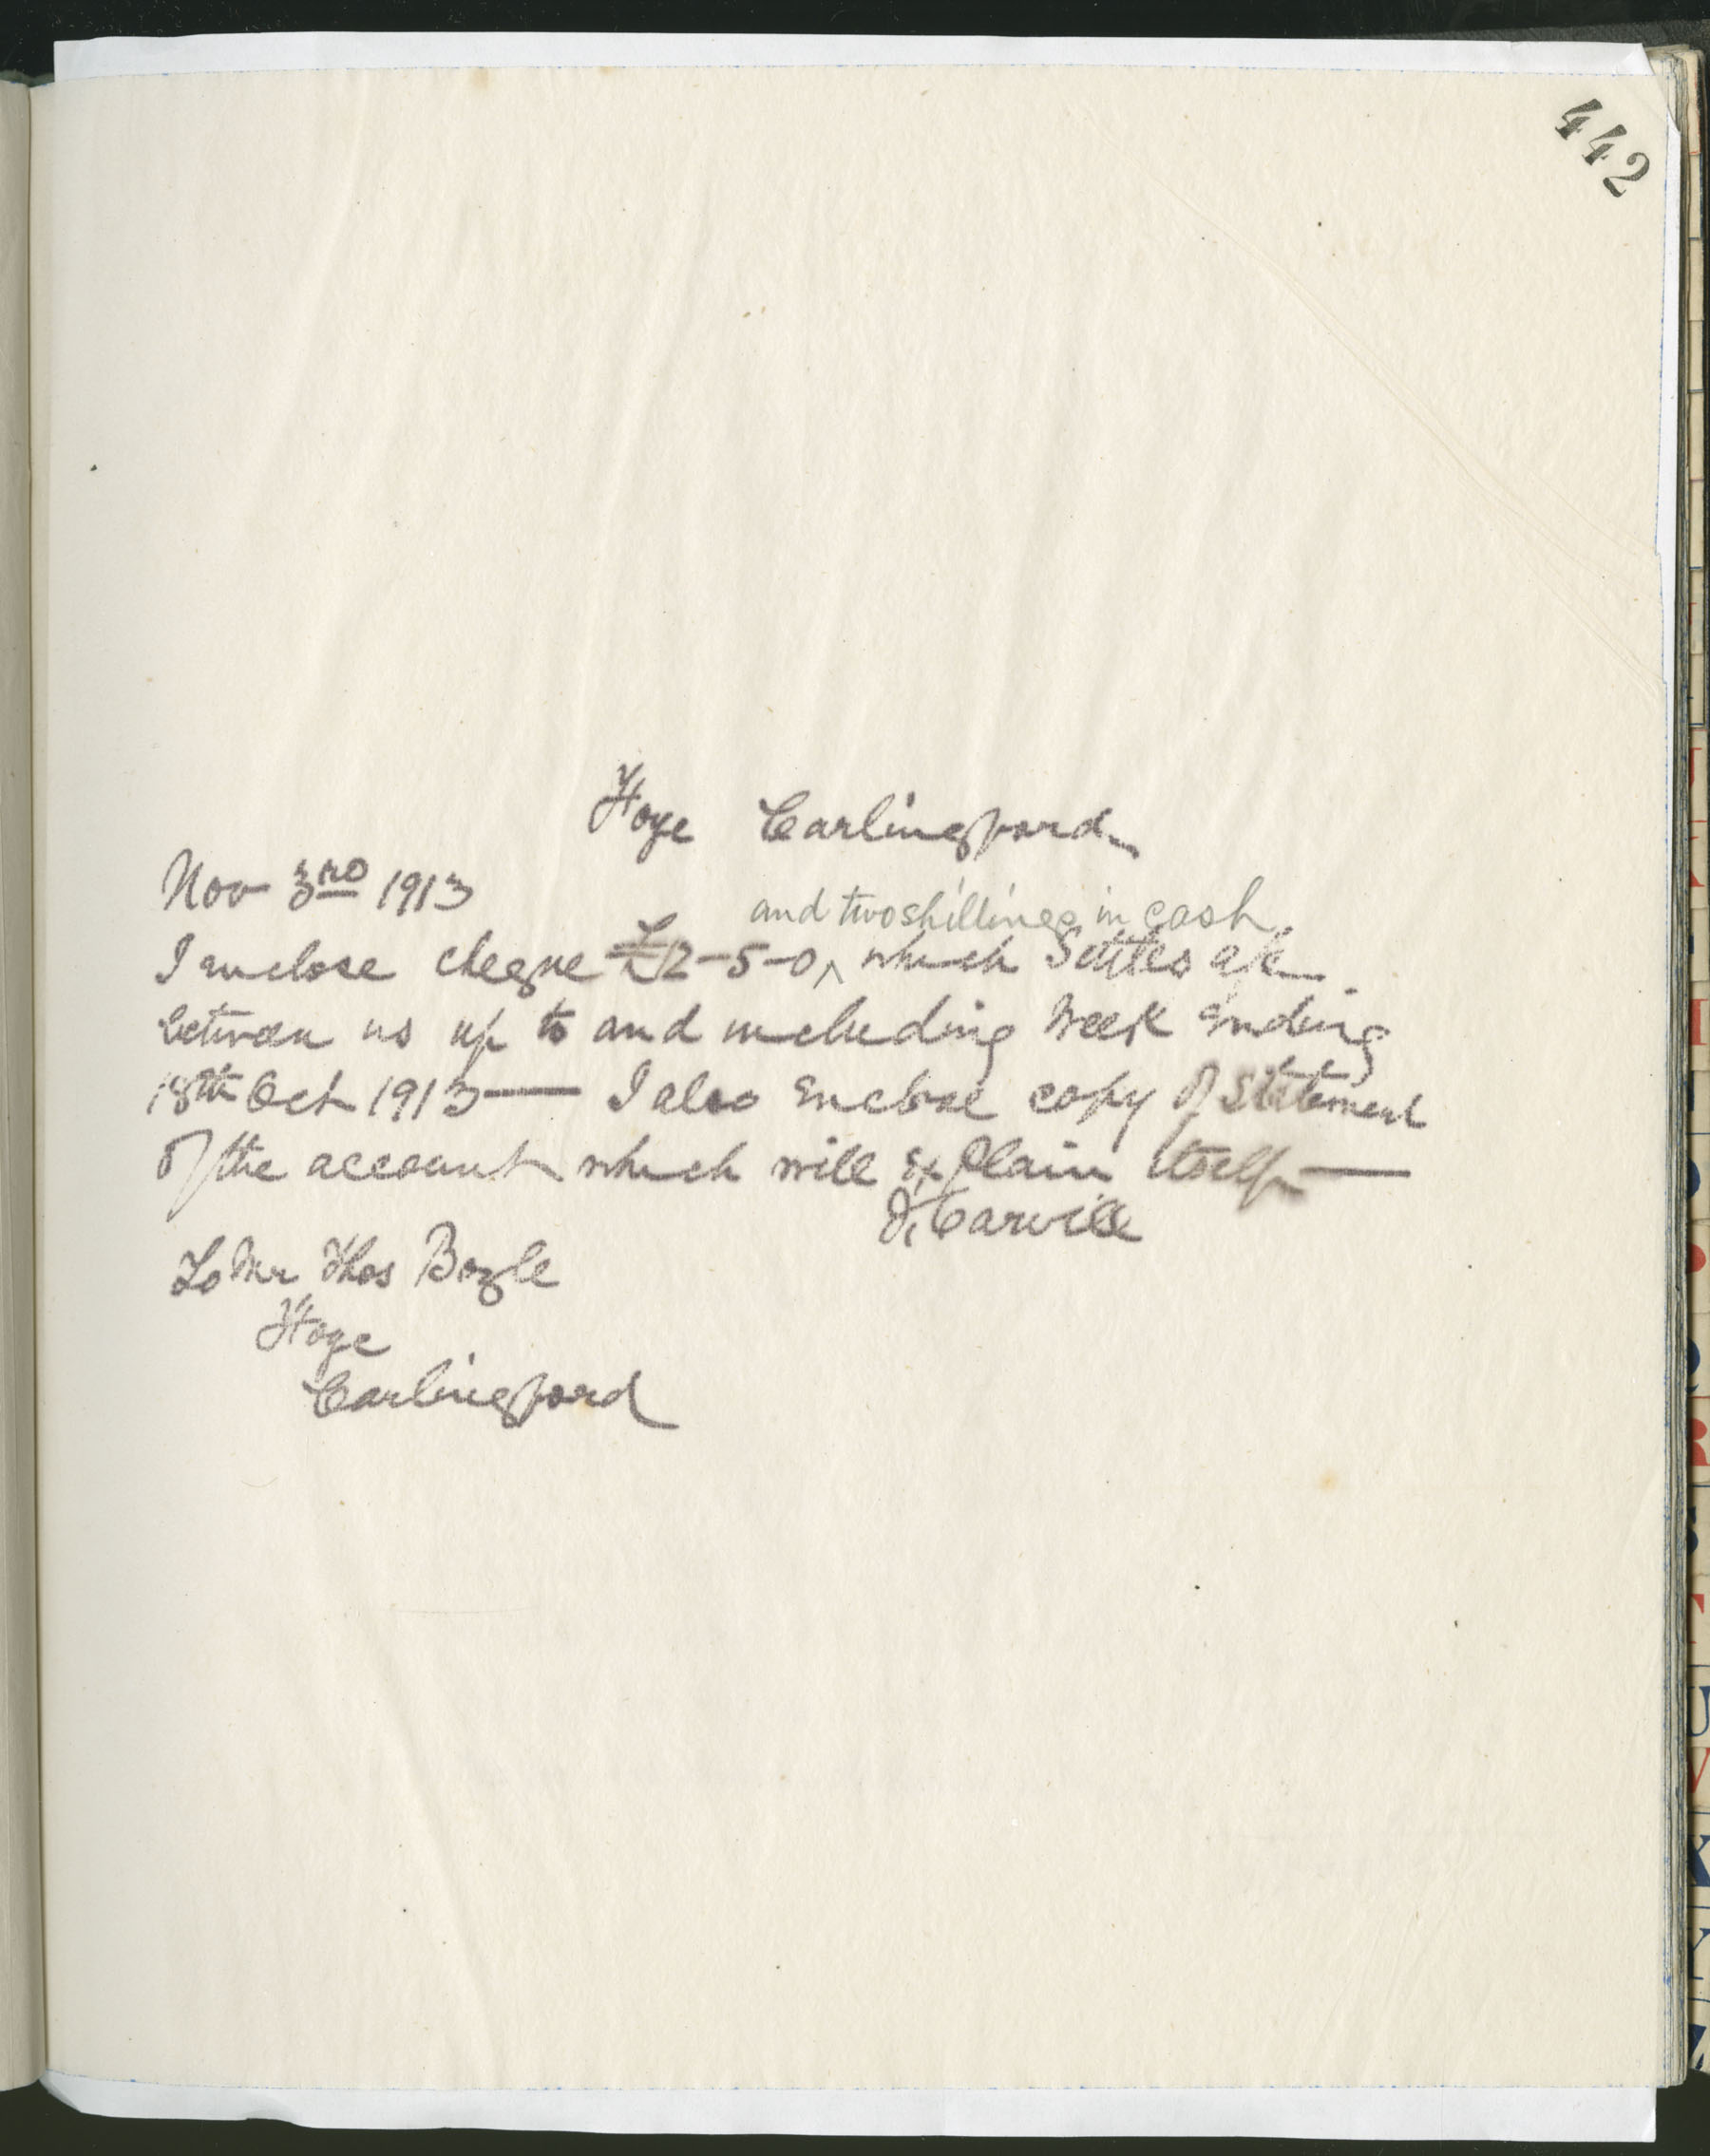 442
Hoye Carlingford
Nov 3rd 1913
and two shillings in cash
I enclose cheque £2-5-0 ^ which Settles a/c
between us up to and including Week Ending
18th Oct 1913 — I also Enclose copy of Statement
of the account which will Explain itself —
Carvill
To Mr Thos Boyle
Hoye
Carlingford